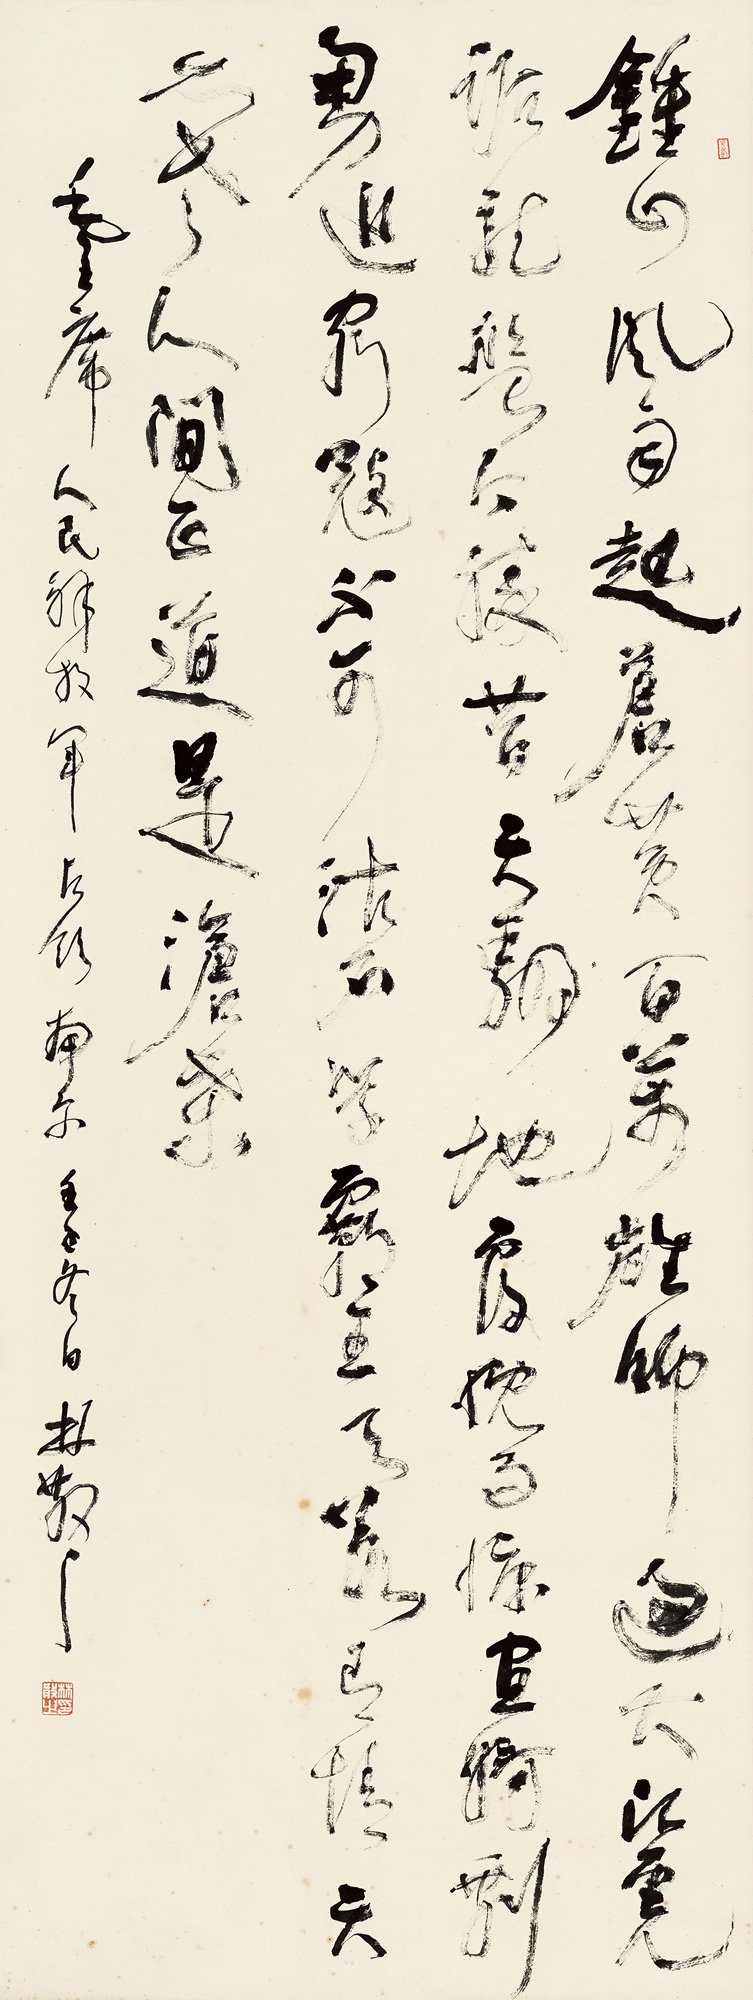 鍾山風雨起蒼黃百萬雄師過大江虎
踞龍盤今勝昔天翻地覆慨而慷宜將剩
勇追窮寇不可沽名學霸王天若有情天
亦老人間正道是滄桑
毛主席人民解放軍占領南京壬子冬日林散之